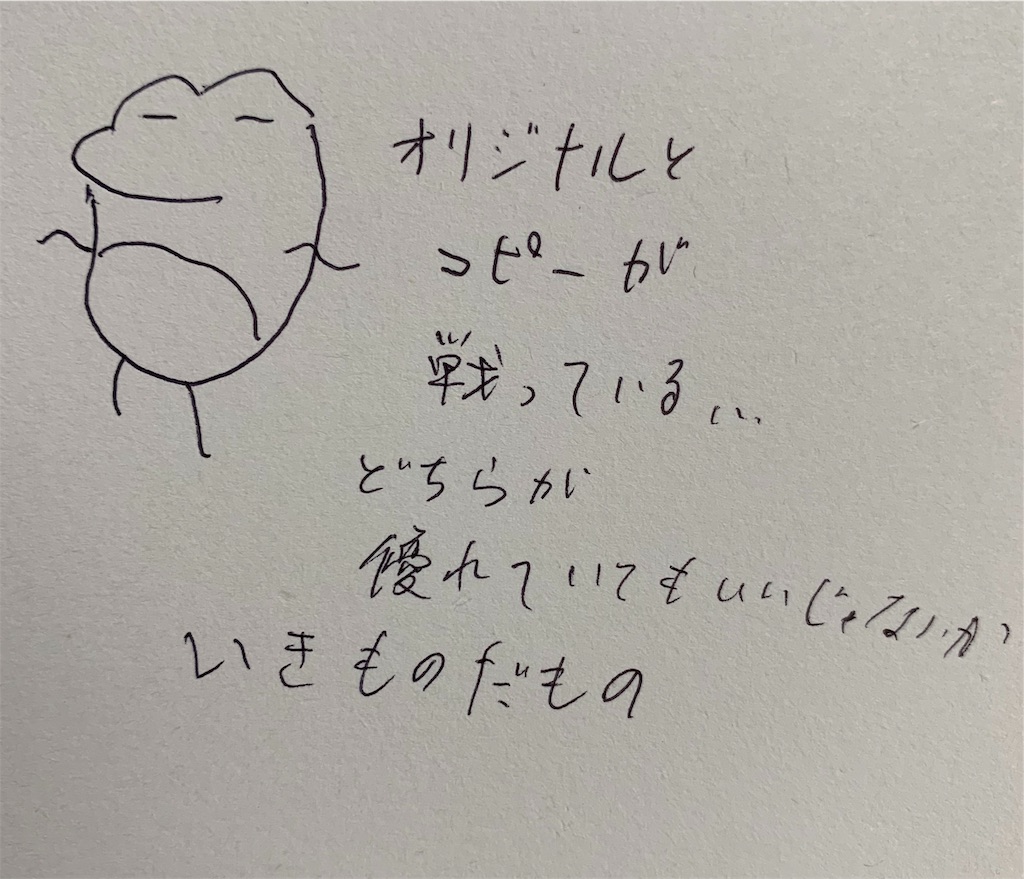 オリジナルと
コピーが
戦っている...
どちらが
優れていてもいいじゃないか
いきものだもの